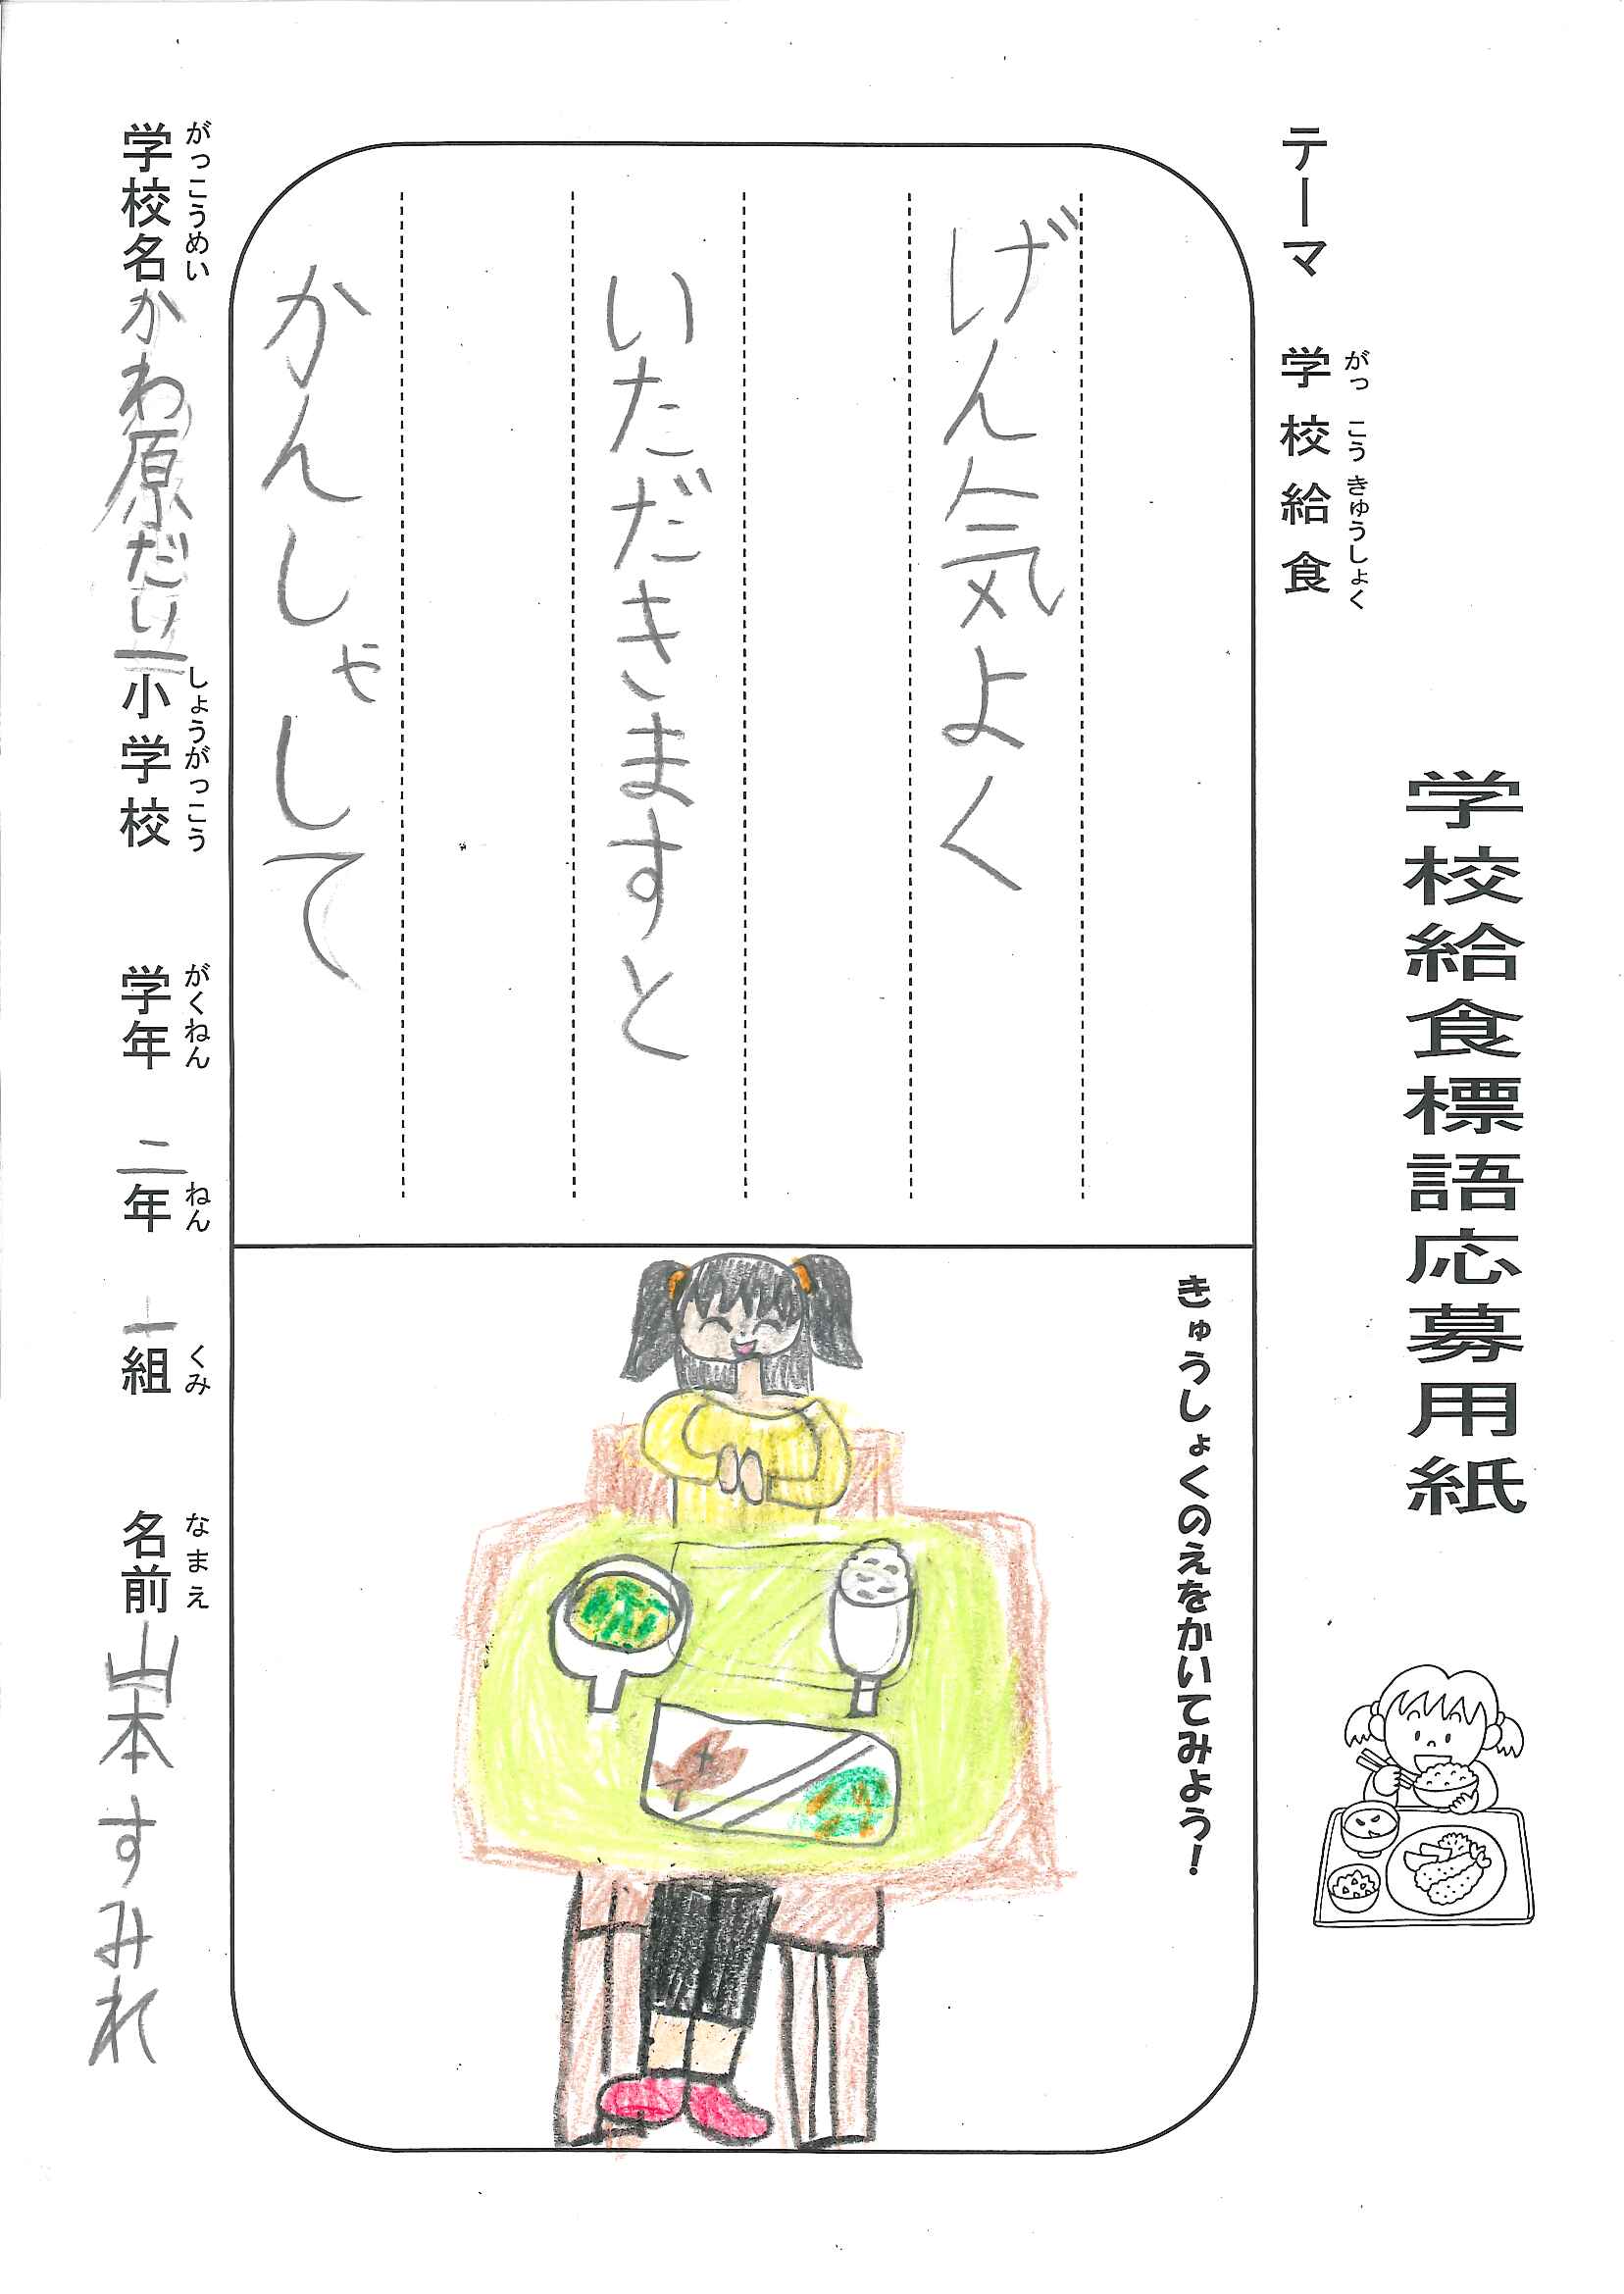 学校給食標語応募用紙
テーマ 学校給食
がっこうきゅうしょく
げん気よく
いただきますと
かんしゃして
きゅうしょくのえをかいてみよう！
がっこうめい しょうがっこう がくねん ねん くみ なまえ
学校名 かわ原だい一小学校 学年 二年 一組 名前 山本すみれ